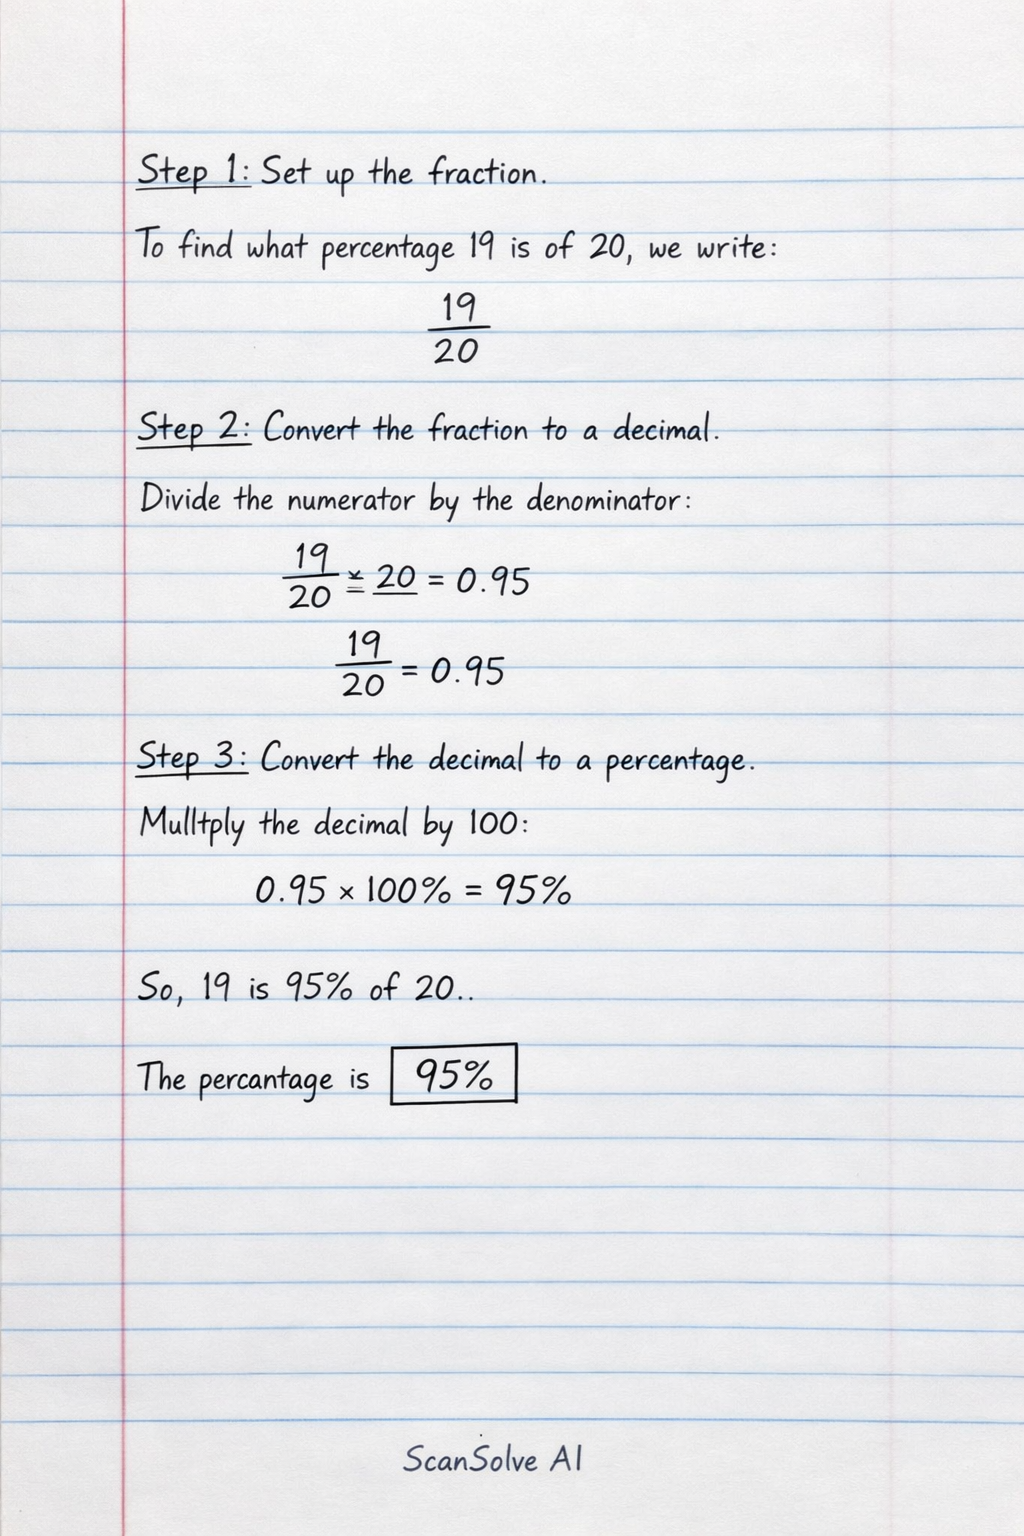 Step 1: Set up the fraction.
To find what percentage 19 is of 20, we write:
19
20
Step 2: Convert the fraction to a decimal.
Divide the numerator by the denominator:
19
20 × 20 = 0.95
19
20 = 0.95
Step 3: Convert the decimal to a percentage.
Mulltply the decimal by 100:
0.95 × 100% = 95%
So, 19 is 95% of 20..
The percantage is 95%
ScanSolve AI